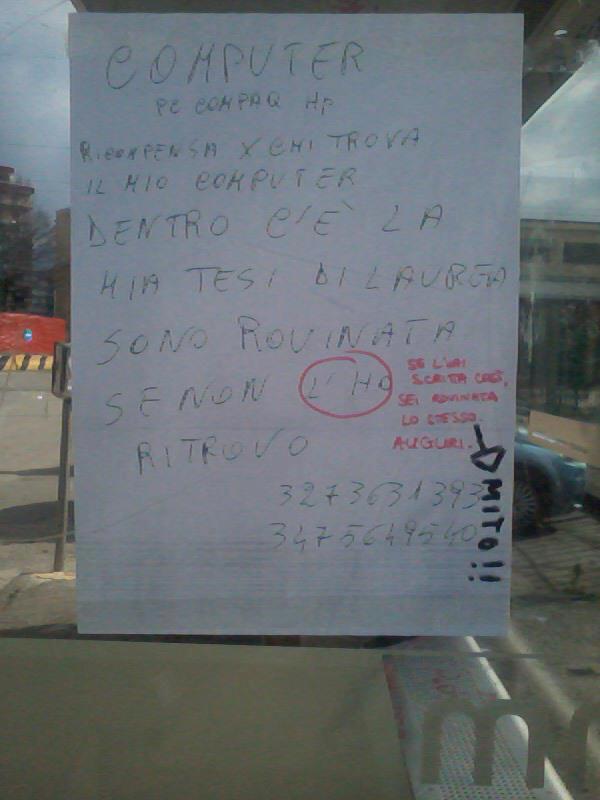 COMPUTER
PC COMPAQ HP
RICOMPENSA X CHI TROVA
IL MIO COMPUTER
DENTRO C'È LA
MIA TESI DI LAUREA
SONO ROVINATA
SE NON L'HO
RITROVO
SE L'HAI
SCRITTA COSÌ,
SEI ROVINATA
LO STESSO.
AUGURI.
MITO!!
3273631393
3475649540